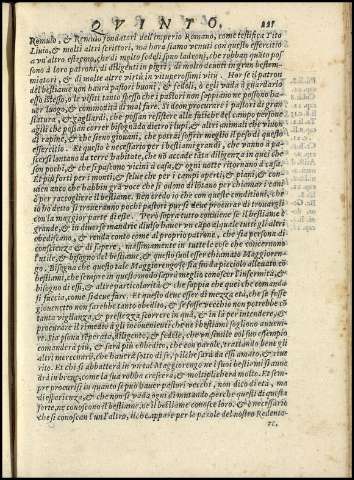 QVINTO. 221
Romulo, & Remulo fondatori dell'Imperio Romano, come testifica Tito
Liuio, & molti altri scrittori, ma hora siamo venuti con questo essercitio
a vn'altro estremo, che di molto fedeli
sono à loro patroni, di diligenti in pigri, di molto deuoti in gran bestem-
miatori, & di molte altre virtù in vituperosissimi vitij. Hor se il patron
del bestiame non haurà pastori buoni, & fedeli, & egli vada à guardarlo
esso stesso, ò le visiti tanto spesso che i pastori non sappiano ne possono ha-
uer luogo, & commodità di mal fare. Si deon procurare i pastori di gran
statura, & gagliardi, che possan resistere alle fatiche del campo persone
agili che possan correr bisognando dietro i lupi, & altri animali che viuon
di rapine, & che sieno giouani, che potrà soffrir meglio il peso di questo
essercitio. Et questo è necessario per i bestiami grandi, che vanno à pa-
scersi lontano da terre habitate, che nò accade tāta diligenza in quei che
son pochi, & che si pascono vicini à casa, & ogni notte ritornano à casa.
Et più forti per i monti, & selue che per i campi aperti, & piani, & con-
uien anco che habbin grā voce che si odono di lōtano per chiamar i cani
ò per raccogliere il bestiame. Ben credo io che con queste conditioni, che
io hò detto si trouerāno pochi pastori pur si deue procurar di trouargli
con la maggior parte di esse. Però sopra tutto conuiene se il bestiame è
grande, & in diuerse mandrie diuiso hauer vn capo al quale tutti gli altri
obediscano, & renda conto come al proprio patrone, che sia persona di
conscienza & di sapere, massimamente in tutte le cose che concernono
l'vtile, & bisogno del bestiame, & questo suol esser chiamato Maggioren-
go. Bisogna che questo tale Maggiorengo sia sin da picciolo alleuato co
bestiami, che sempre in questo modo saprà meglio conoscer l'infermità,
bisogno di essi, & altre particolarità & che sappia che quei che comanda
si faccia, come si deue fare. Et questo deue esser di mezza età, che se fosse
giouenetto non sarebbe tanto obedito, & se fosse vecchio non potrebbe cō
tanta vigilanza, & prestezza scorrere in quà, & in là per intendere, &
procurare il rimedio à gli inconuenienti che ne i bestiami sogliono auueni-
re. Sia persona sperata, diligente, & fedele, che vn simile col suo essempio
comanderà più, & sarà più obedito, che con parole, trattando bene gli
altri mercenarij, che hauerà sotto di se, perche sarà da essi amato, & riue-
rito. Et chi si abbatterà in vn tal Maggiorengo ne i suoi bestiami si auue-
drà in breue, come la sua robba crescerà, & multiplicherà molto. Et sem-
pre procurisi in quanto si può hauer pastori vecchi, non dico di età, ma
di esperienza, & che non si vada ogni dì mutando, perche quelli di questa
sorte, ne conoscono il bestiame, ne il bestiame conosce loro. & è necessario
che si conoscan l'un l'altro, il che appare per le parole del nostro Redento-
re,